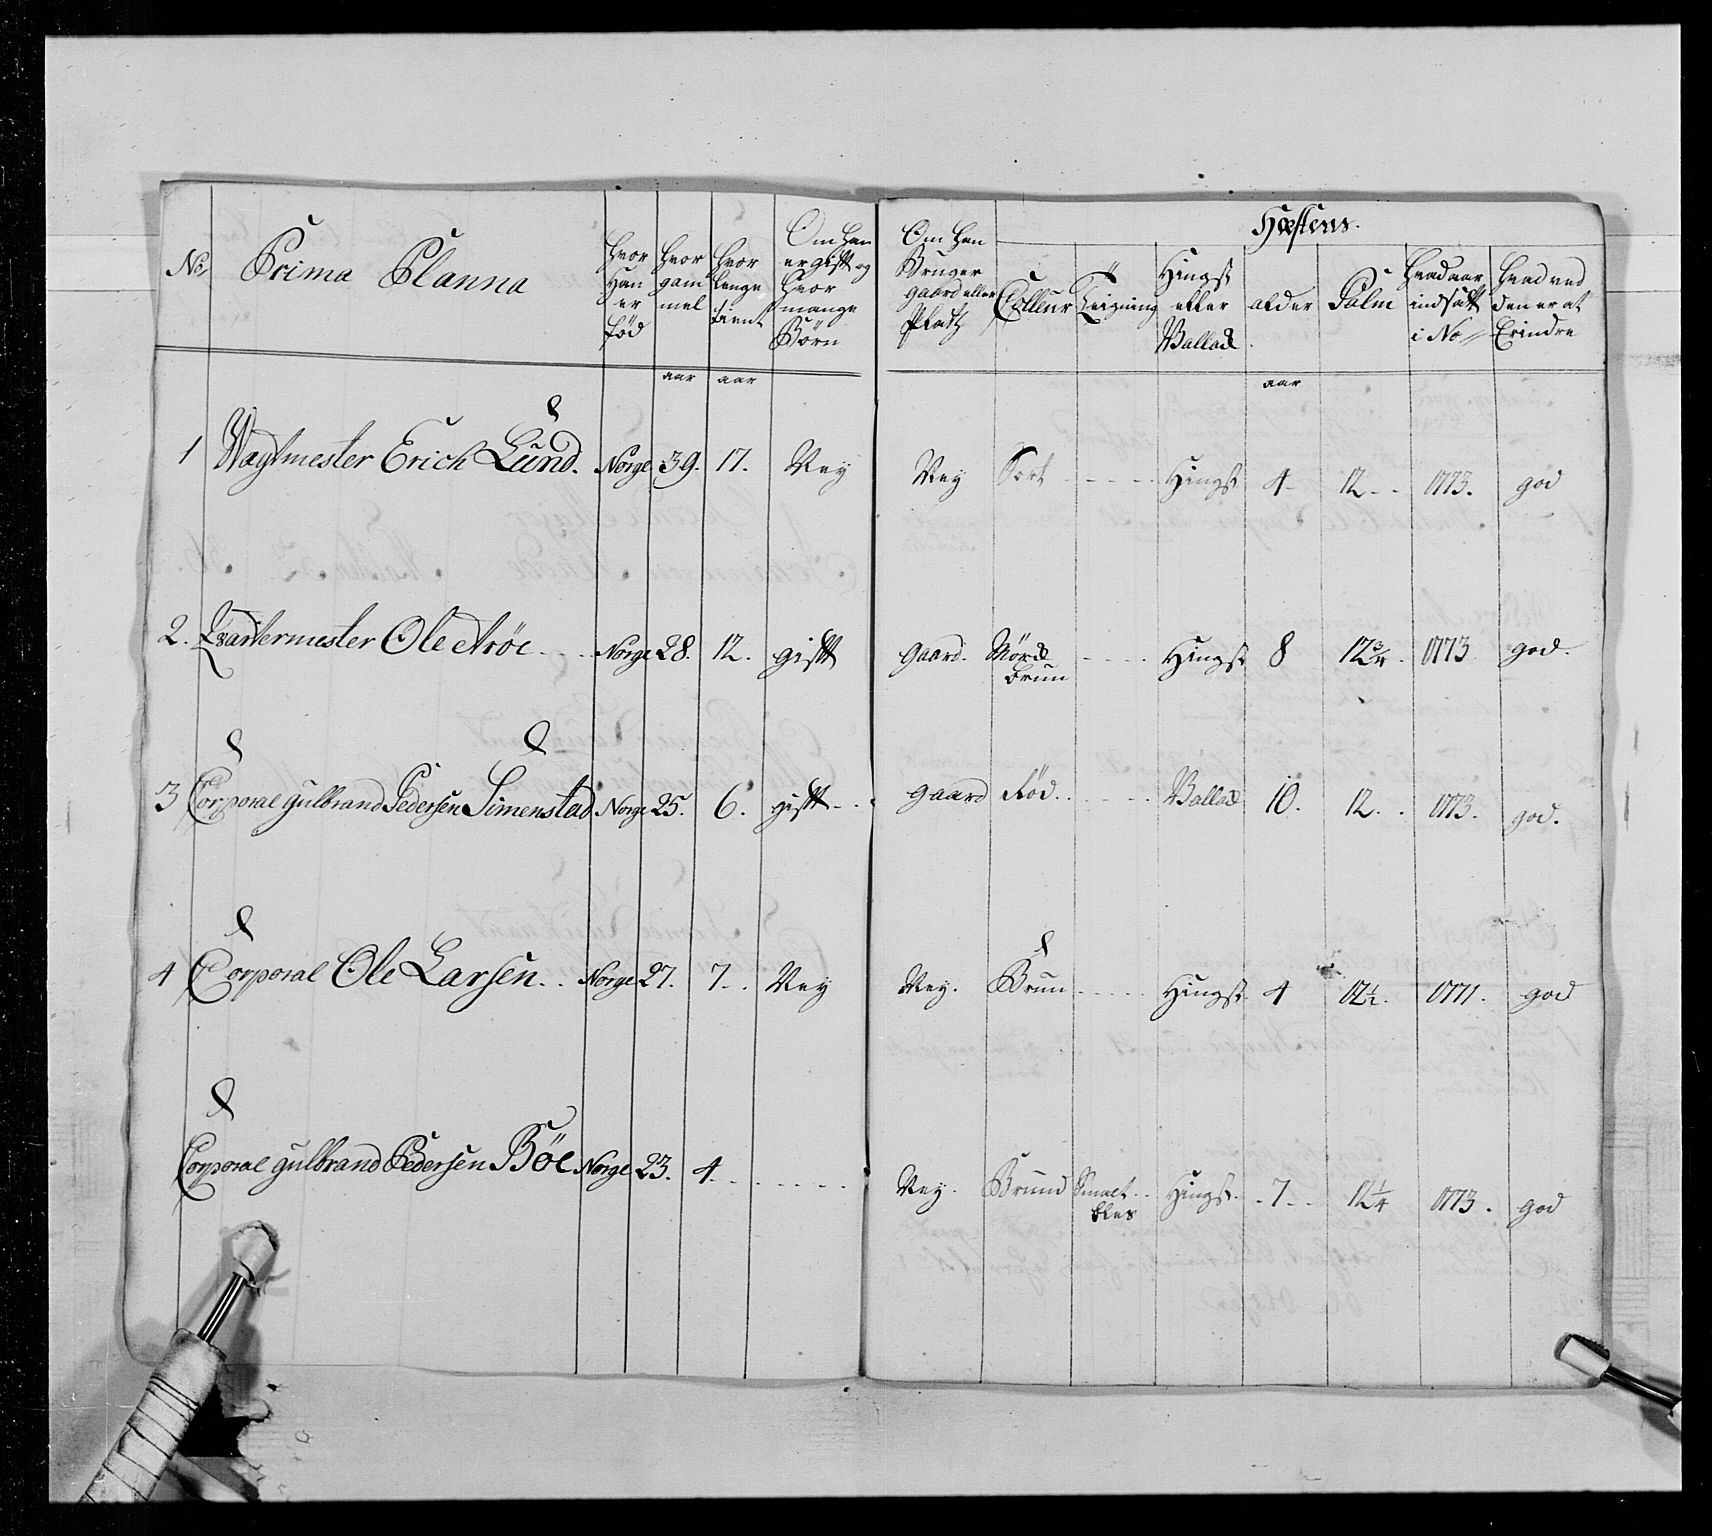 No
Prima Planna
hvor Han er fød
hvor gam mel
hvor lenge tient
Om han er gift og hvor mange Børn
Om han Bruger gaard eller Platz
Hæstens.
Colleur
Teigning
Hingst eller Vallak
alder
Palm
hvad aar indsatt i No
hvad ved den er at Erindre
aar aar aar
1 Wagtmester Erich Lund. Norge 39. 17. Ney Ney Sort Hingst 4 12 1773. god
2. Qvartermester Ole Norge 28. 12. gift gaard. Mørk brun Hingst 8 12 3/4. 1773 god.
3 Corporal gulbrand Pedersen Simenstad Norge 25. 6. gift gaard Rød. Vallak 10. 12. 1773. god.
4 Corporal Ole Larsen Norge 27. 7. Ney Ney. Brun Hingst 4 12 1/2. 1771. god
Corporal gulbrand Pedersen Böe Norge 23. 4. Ney. Bruun Smal bles Hingst. 7 12 1/4 1773. god